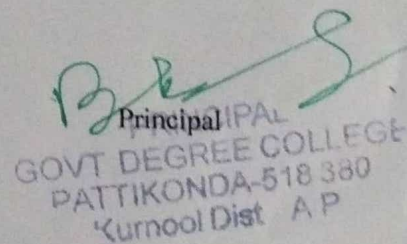 Principal
PRINCIPAL
GOVT DEGREE COLLEGE
PATTIKONDA-518 380
Kurnool Dist A P